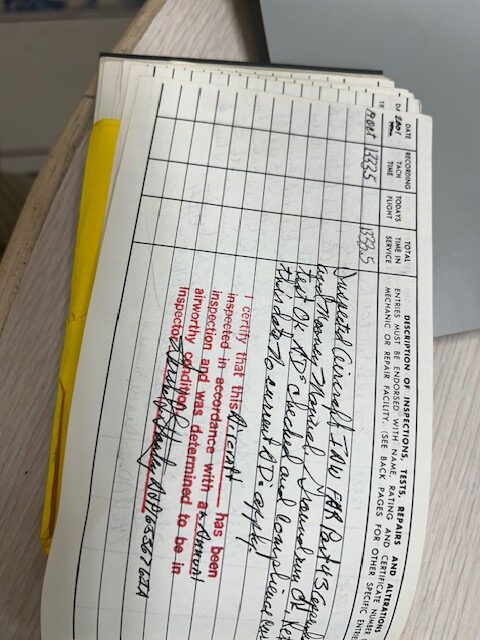 DATE
2001
19
RECORDING
TACH
TIME
TODAYS
FLIGHT
TOTAL
TIME IN
SERVICE
DESCRIPTION OF INSPECTIONS, TESTS, REPAIRS AND ALTERATIONS
ENTRIES MUST BE ENDORSED WITH NAME, RATING AND CERTIFICATE NUMBER
MECHANIC OR REPAIR FACILITY. (SEE BACK PAGES FOR OTHER SPECIFIC ENTRIE
19 Oct 1333.5 1333.5 Inspected aircraft IAW FAR Part 43
and Manual.
test OK AD's checked and complied
this date No current AD's apply.
I certify that this Aircraft has been
inspected in accordance with an Annual
inspection and was determined to be in
airworthy condition.
Inspector